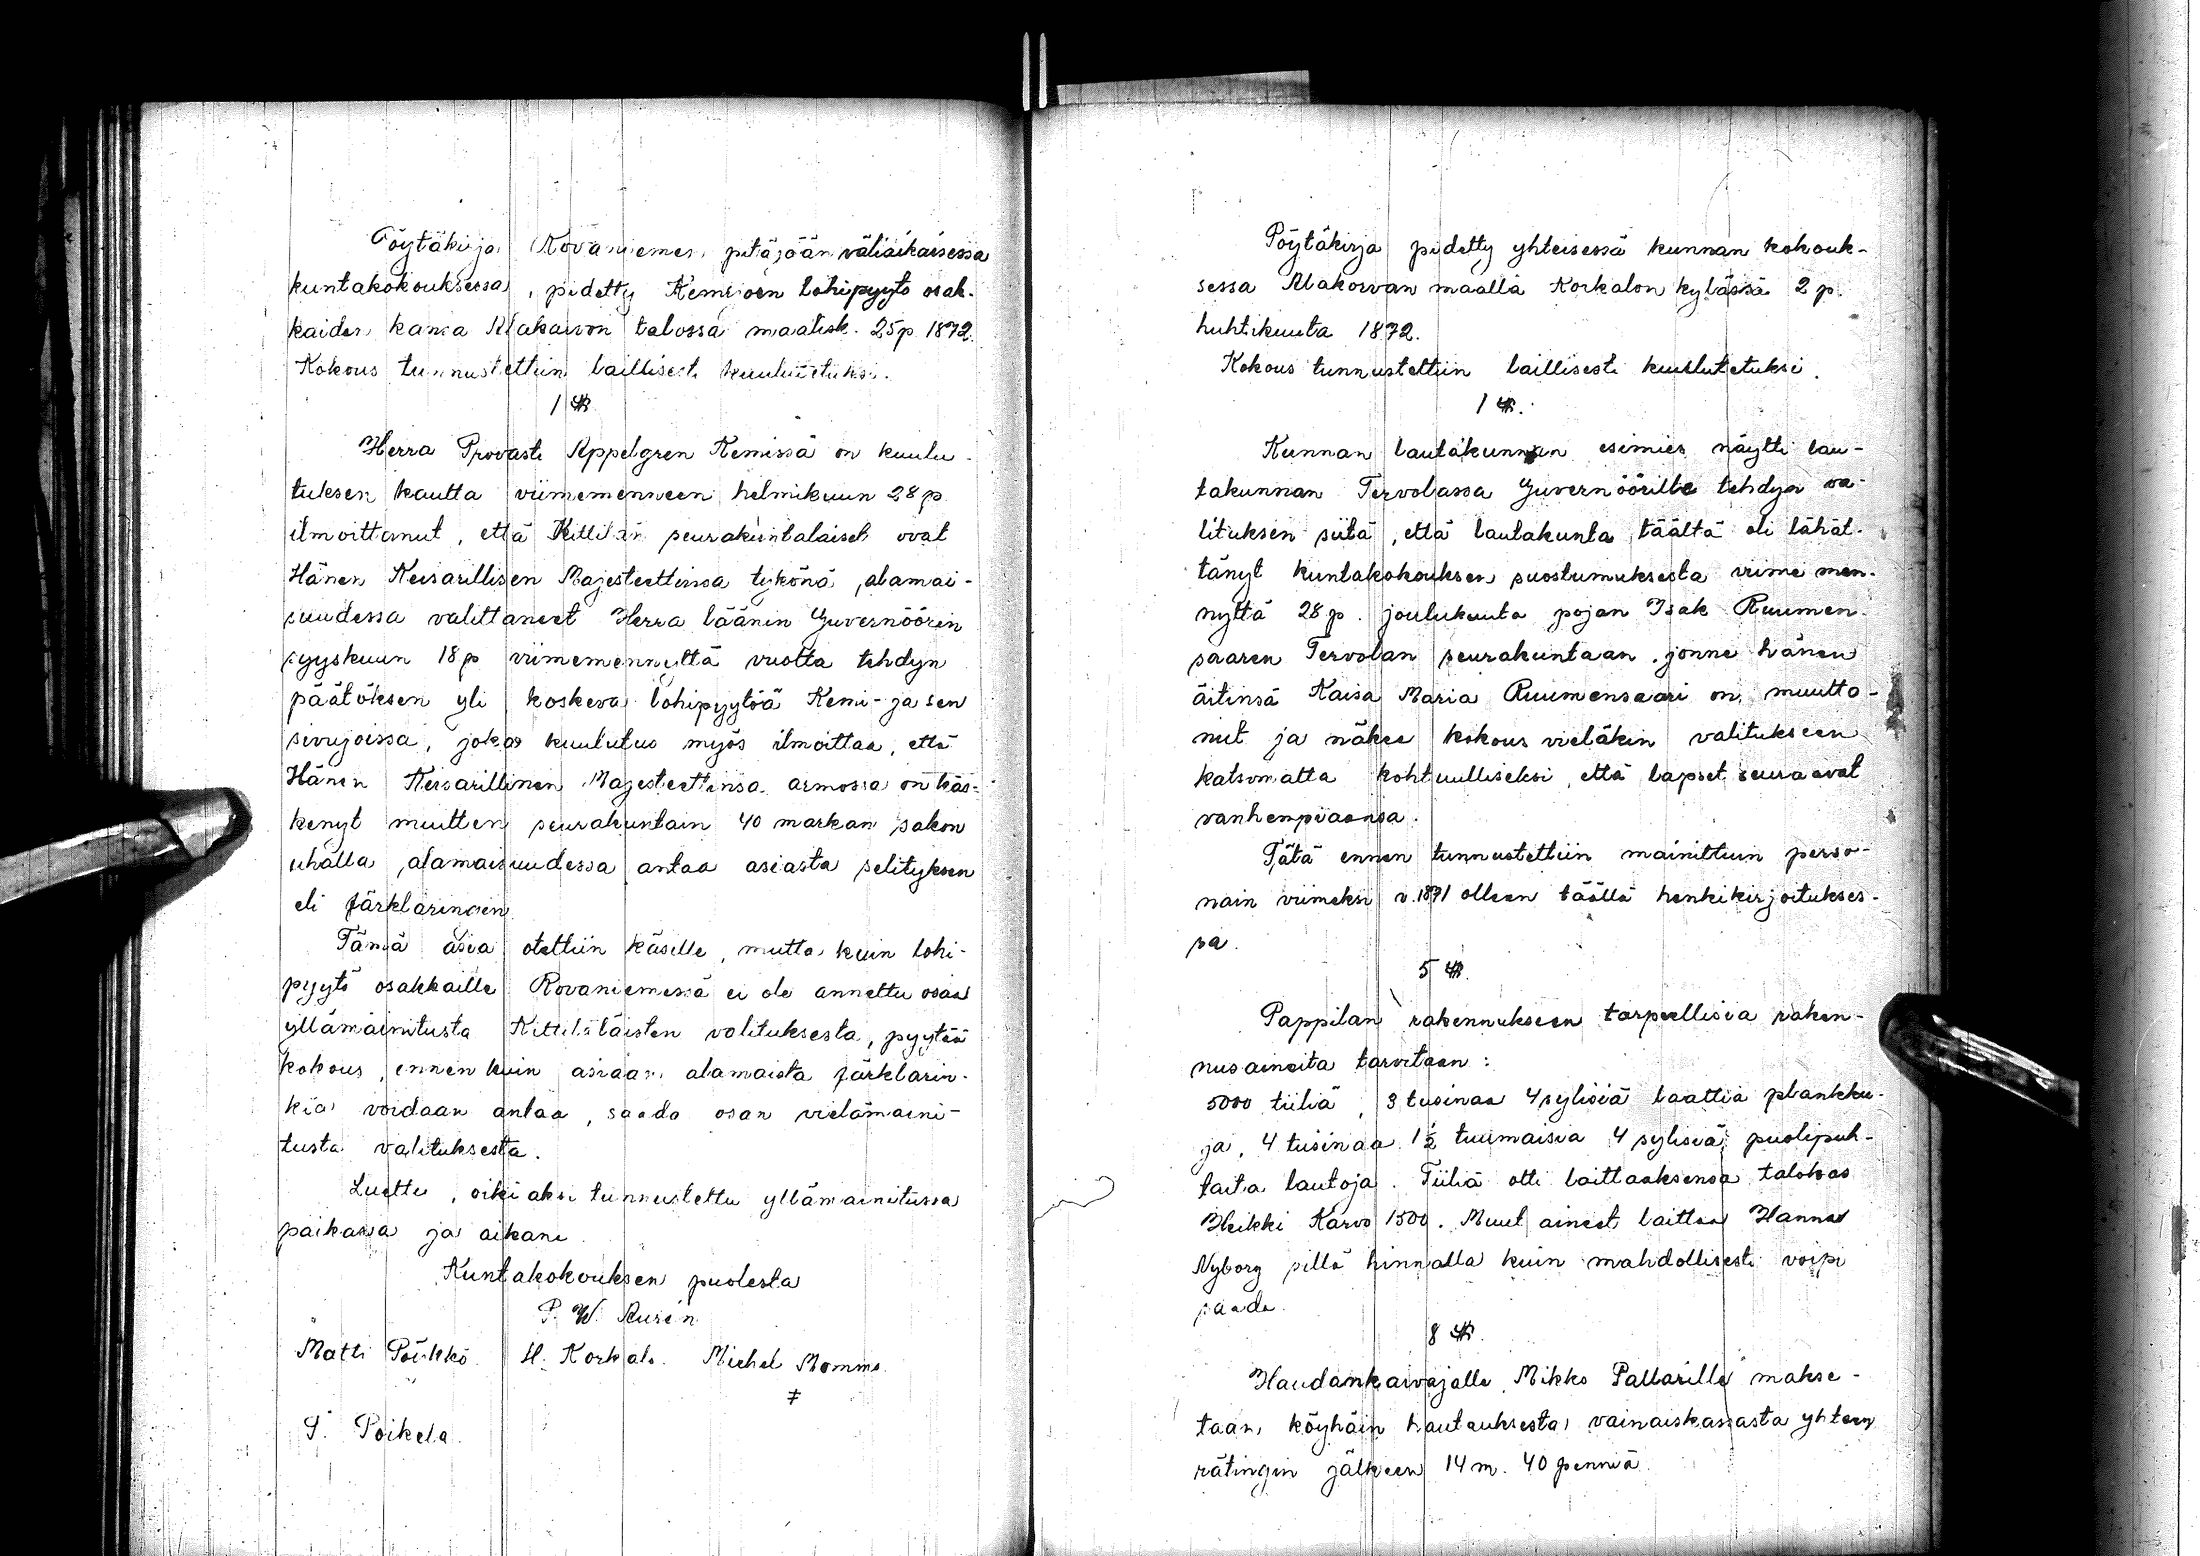 Pöytäkirja Rovaniemen pitäjään väliaikaisessa
kuntakokouksessa, pidetty Kemijoen lohipyytö osak-
kaiden kanssa Alakorvan talossa maalisk. 25 p 1872.
Kokous tunnustettiin laillisesti kuulutetuksi.
1 §.
Herra Provasti Appelgren Kemissä on kuulu-
tuksen kautta viimemenneen helmikuun 28 p
ilmoittanut, että Kittilän seurakuntalaiset ovat
Hänen Keisarillisen Majesteettinsa tykönä, alamai-
suudessa valittaneet Herra läänin Guvernöörin
syyskuun 18 p viimemennyttä vuotta tehdyn
päätöksen yli koskeva lohipyytöä Kemi- ja sen
sivujoissa, joka kuulutus myös ilmoittaa, että
Hänen Keisarillinen Majesteettinsa armossa on käs-
kenyt muitten seurakuntain 40 markan sakon
uhalla, alamaisuudessa antaa asiasta selityksen
eli Järklaringen
Tämä asia otettiin käsille, mutta kuin lohi-
pyytö osakkaille Rovaniemessä ei ole annettu osaa
yllämainitusta Kittiläläisten valituksesta, pyytää
kokous, ennen kuin asiaan alamaista Järklarin-
kia voidaan antaa, saada osan vielämaini-
tusta valituksesta.
Luettu, oikiaksi tunnustettu yllämainitussa
paikassa ja aikana
Kuntakokouksen puolesta
P. W. Aurén
Matti Pöykkö H. Korkalo. Michel Mommo.
‡
J. Poikela.
Pöytäkirja pidetty yhteisessä kunnan kokouk-
sessa Alakorvan maalla Korkalon kylässä 2 p.
huhtikuuta 1872.
Kokous tunnustettiin laillisesti kuulutetuksi.
1 §.
Kunnan lautakunnan esimies näytti lau-
takunnan Tervolassa Guvernöörille tehdyn va-
lituksen siitä, että lautakunta täältä oli lähät-
tänyt kuntakokouksen suostumuksesta viime men-
nyttä 28 p. joulukuuta pojan Isak Ruumen-
saaren Tervolan seurakuntaan, jonne hänen
äitinsä Kaisa Maria Ruumensaari on muutta-
nut ja näkee kokous vieläkin valitukseen
katsomatta kohtuulliseksi, että lapset seuraavat
vanhempiaansa.
Tätä ennen tunnustettiin mainittuin perso-
nain viimeksi v. 1871 olleen täällä henkikirjoitukses-
sa.
5 §.
Pappilan rakennukseen tarpeellisia raken-
nusaineita tarvitaan:
5000 tiiliä, 3 tusinaa 4 sylisiä laattia plankku-
ja, 4 tusinaa 1½ tuumaisia 4 sylisiä puolipuh-
taita lautoja. Tiiliä otti laittaaksensa talokas
Heikki Karvo 1500. Muut aineet laittaa Hannes
Nyborg sillä hinnalla kuin mahdollisesti voipi
saada.
8 §.
Haudankaivajalle Mikko Pallarille makse-
taan köyhäin hautauksesta vaivaiskassasta yhteen
rätingin jälkeen 14 m. 40 penniä